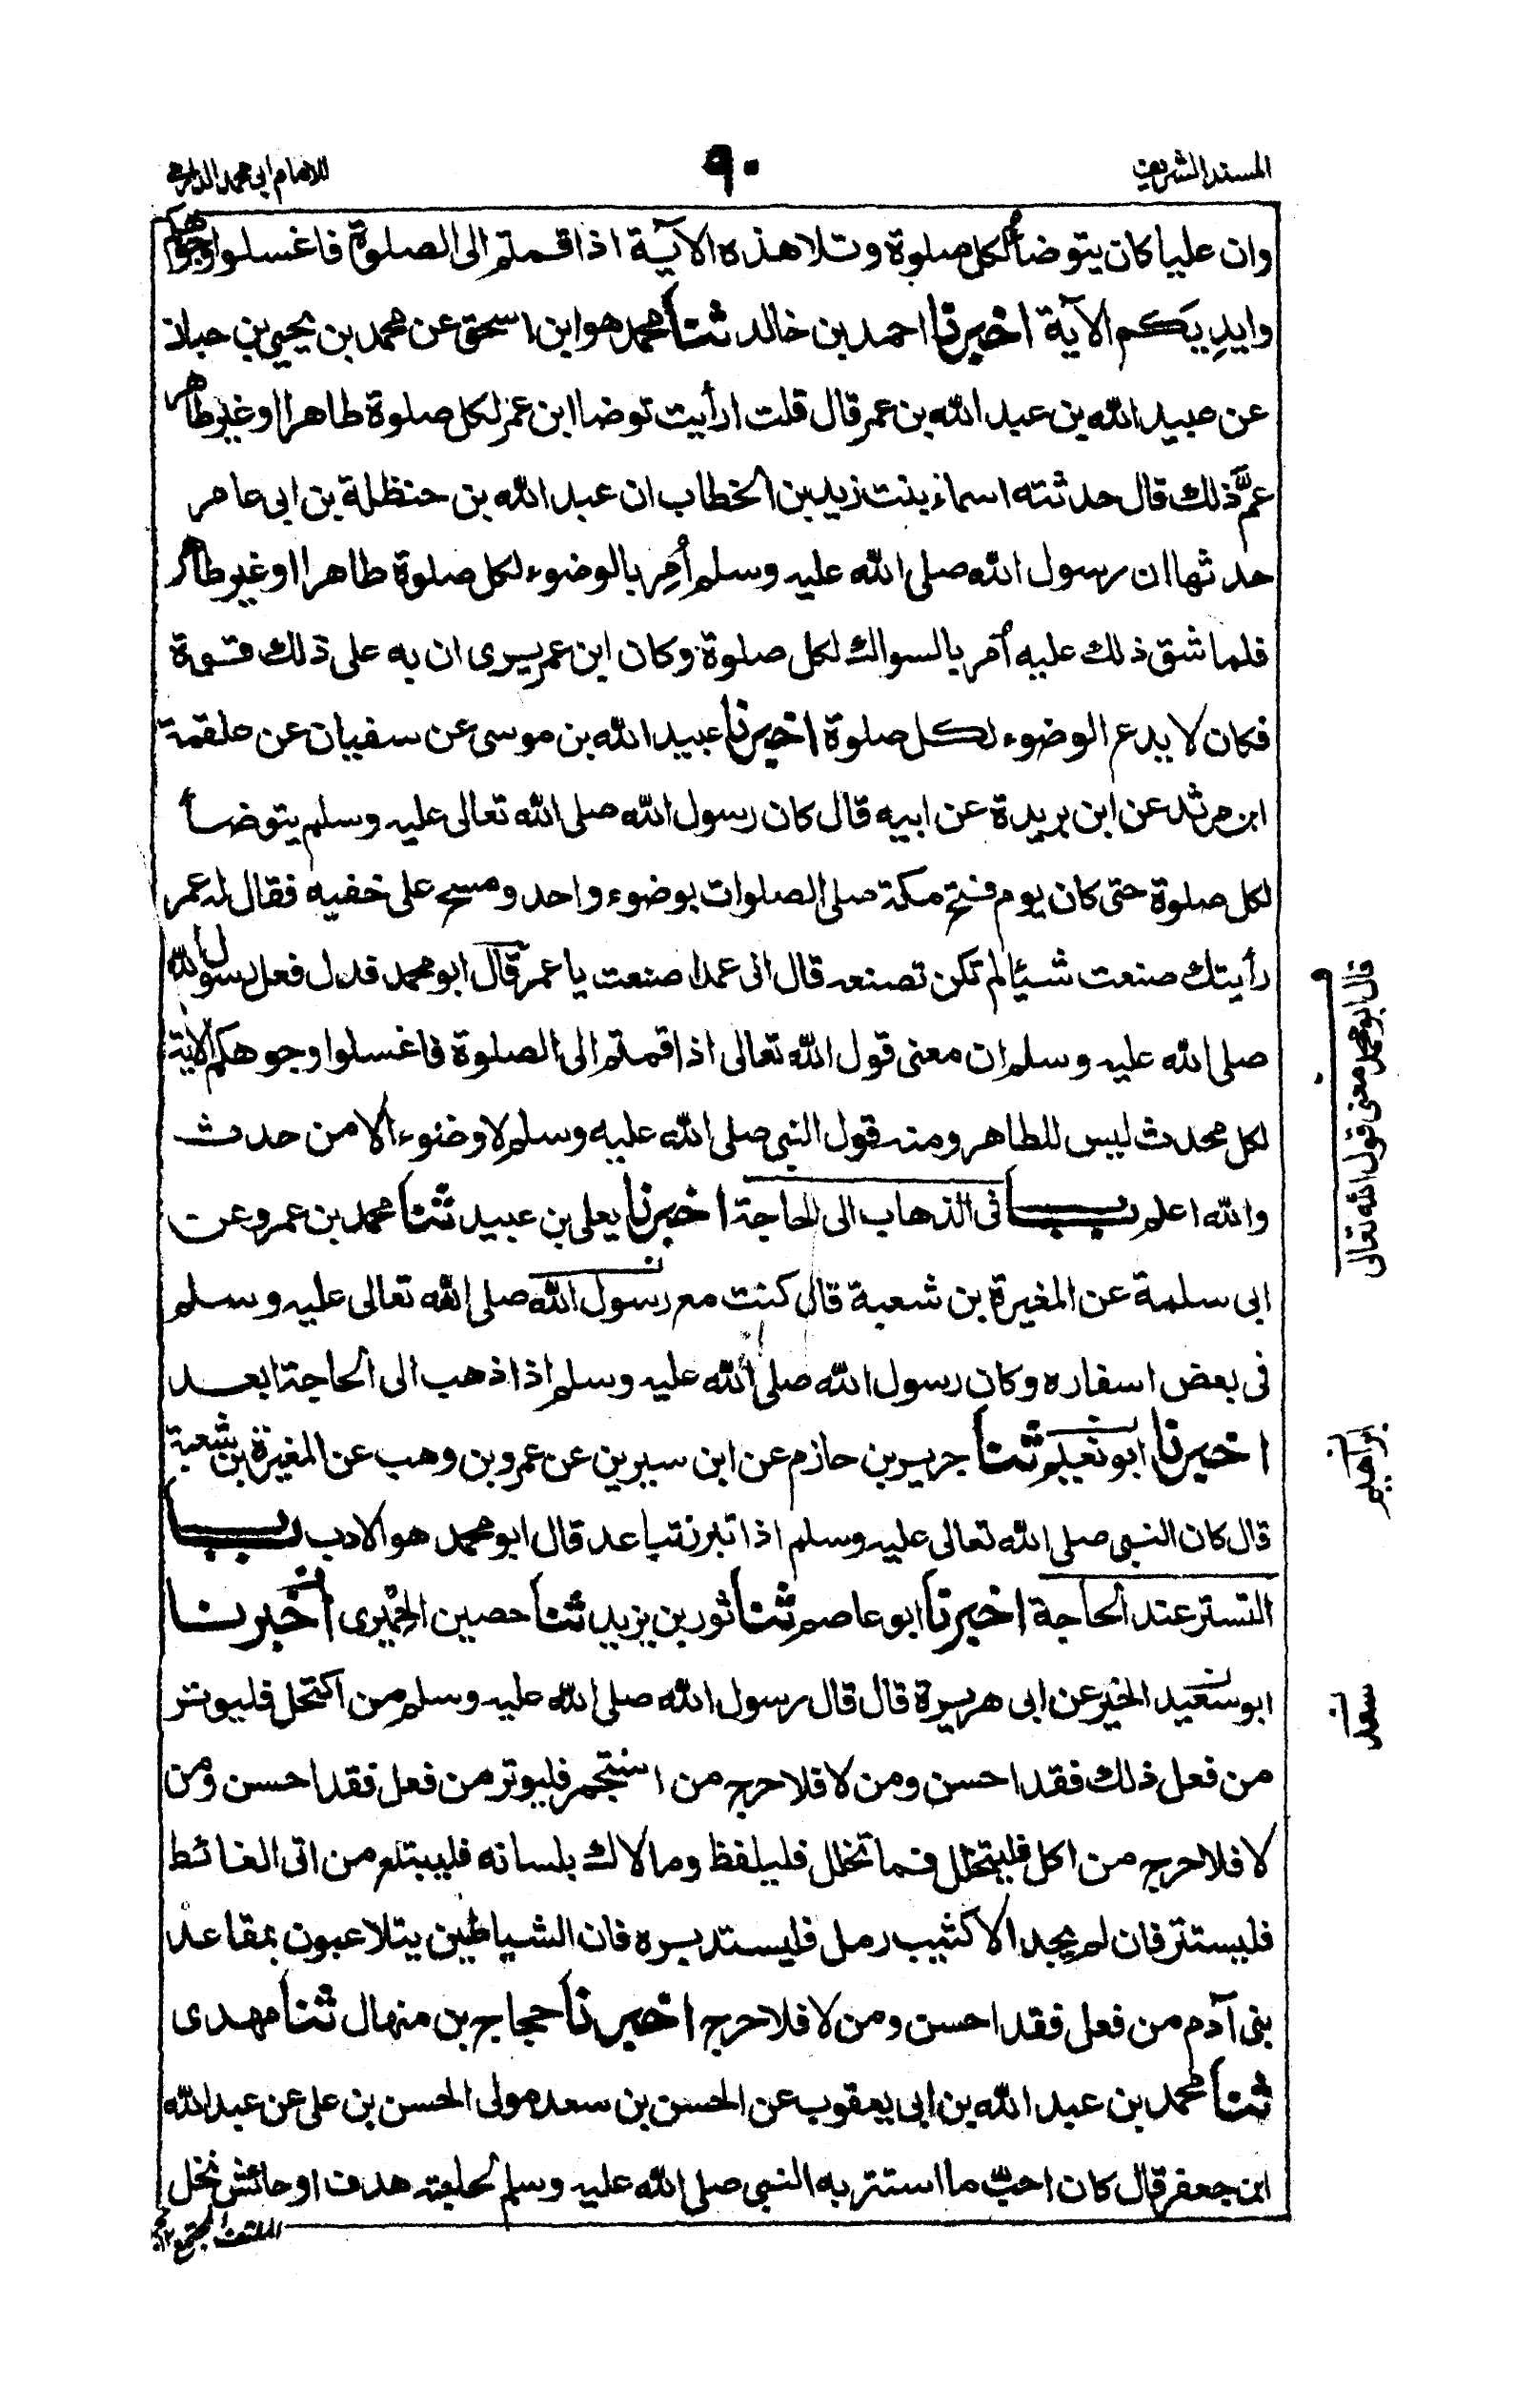 المسند الشريف
٩٠
للامام ابي محمد الدارمي
وان عليا كان يتوضأ لكل صلوة وتلا هذه الآية اذا قمتم الى الصلوة فاغسلوا وجوهكم
وايديكم الآية اخبرنا احمد بن خالد ثنا محمد هو ابن اسحق عن محمد بن يحيى بن حبان
عن عبيد الله بن عبد الله بن عمر قال قلت ارأيت توضا ابن عمر لكل صلوة طاهرا او غير طاهر
عمَّ ذلك قال حدثته اسماء بنت زيد بن الخطاب ان عبد الله بن حنظلة بن ابى عامر
حدثها ان رسول الله صلى الله عليه وسلم اُمِر بالوضوء لكل صلوة طاهرا او غير طاهر
فلما شق ذلك عليه اُمر بالسواك لكل صلوة وكان ابن عمر يرى ان به على ذلك قوة
فكان لا يدع الوضوء لكل صلوة اخبرنا عبيد الله بن موسى عن سفيان عن علقمة
ابن مرثد عن ابن بريدة عن ابيه قال كان رسول الله صلى الله تعالى عليه وسلم يتوضأ
لكل صلوة حتى كان يوم فتح مكة صلى الصلوات بوضوء واحد ومسح على خفيه فقال له عمر
رأيتك صنعت شيئا لم تكن تصنعه قال انى عمدا صنعت يا عمر قال ابو محمد فدل فعل رسول الله
صلى الله عليه وسلم ان معنى قول الله تعالى اذا قمتم الى الصلوة فاغسلوا وجوهكم الآية
لكل محدث ليس للطاهر ومنه قول النبى صلى الله عليه وسلم لا وضوء الا من حدث
والله اعلم باب فى الذهاب الى الحاجة اخبرنا يعلى بن عبيد ثنا محمد بن عمرو عن
ابى سلمة عن المغيرة بن شعبة قال كنت مع رسول الله صلى الله تعالى عليه وسلم
فى بعض اسفاره وكان رسول الله صلى الله عليه وسلم اذا ذهب الى الحاجة ابعد
اخبرنا ابو نعيم ثنا جرير بن حازم عن ابن سيرين عن عمرو بن وهب عن المغيرة بن شعبة
قال كان النبى صلى الله تعالى عليه وسلم اذا تبرز تباعد قال ابو محمد هو الادب باب
التستر عند الحاجة اخبرنا ابو عاصم ثنا ثور بن يزيد ثنا حصين الحِمْيرى اخبرنا
ابو سعيد الخير عن ابى هريرة قال قال رسول الله صلى الله عليه وسلم من اكتحل فليوتر
من فعل ذلك فقد احسن ومن لا فلا حرج من استجمر فليوتر من فعل فقد احسن ومن
لا فلا حرج من اكل فليتخلل فما تخلل فليلفظ وما لاك بلسانه فليبتلع من اتى الغائط
فليستتر فان لم يجد الا كثيب رمل فليستدبره فان الشياطين يتلاعبون بمقاعد
بنى آدم من فعل فقد احسن ومن لا فلا حرج اخبرنا حجاج بن منهال ثنا مهدى
ثنا محمد بن عبد الله بن ابى يعقوب عن الحسن بن سعد مولى الحسن بن على عن عبد الله
ابن جعفر قال كان احبّ ما استتر به النبى صلى الله عليه وسلم لحاجته هدف او حائش نخل
الملتف المجتمع ١٢
قال ابو محمد معنى قول الله تعالى
سعد